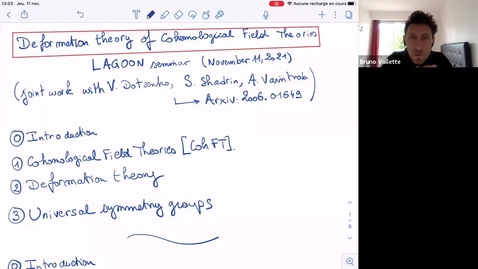 13:03 Jeu. 11 nov.
Aucune recharge en cours
Deformation theory of Cohomological Field Theories
LAGOON seminar (November 11, 2021)
(joint work with V. Dotsenko, S. Shadrin, A. Vaintrob)
Arxiv: 2006.01649
⓪ Introduction
① Cohomological Field Theories [CohFT].
② Deformation theory
③ Universal symmetry groups
⓪ Introduction
1 / 8
Bruno Vallette